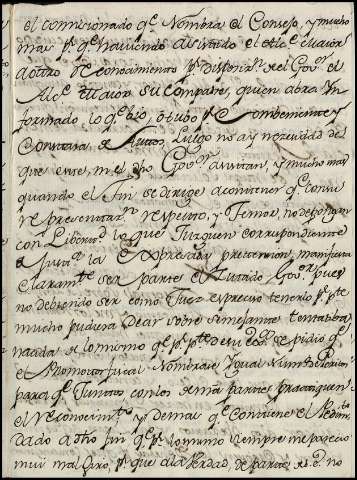 el comicionado qe. Nombra el Consejo, y mucho
mas pr. qe. haviendo asistido el Alce. maior
a otro Reconocimiento pr. disposn. del Govor. el
Alce. maior su Compadre, quien abra in
formado lo qe. bio, otubo pr. Combeniente y
Constara de Autos, Luego no ay nezecidad del
que viene, ni el dho Govor. asistan, y mucho mas
quando el fin se dirige a contener qe. con su
representazn. respecto, y Temor, no depongan
con Libertad. lo que Juzguen correspondiente
la Expresada pretencion, manifiesta
claramte. ser parte el citado Govor. pues
no debiendo ser como Juez es preciso tenerlo pr. pte
mucho pudiera decir sobre semejante tentatiba
nacida lo mismo qe. pr. pte de mi se pidio qe.
el Promotor fiscal Nombrase Ygual Numo. de Peritos
para qe. Juntos con los demas partes practiquen
el Reconocimto. y demas qe. Conviene el
dado a dho fin qe. pr. lo mismo siempre me parecio
mui mal Giro, pr. que a la Verdad de parte no